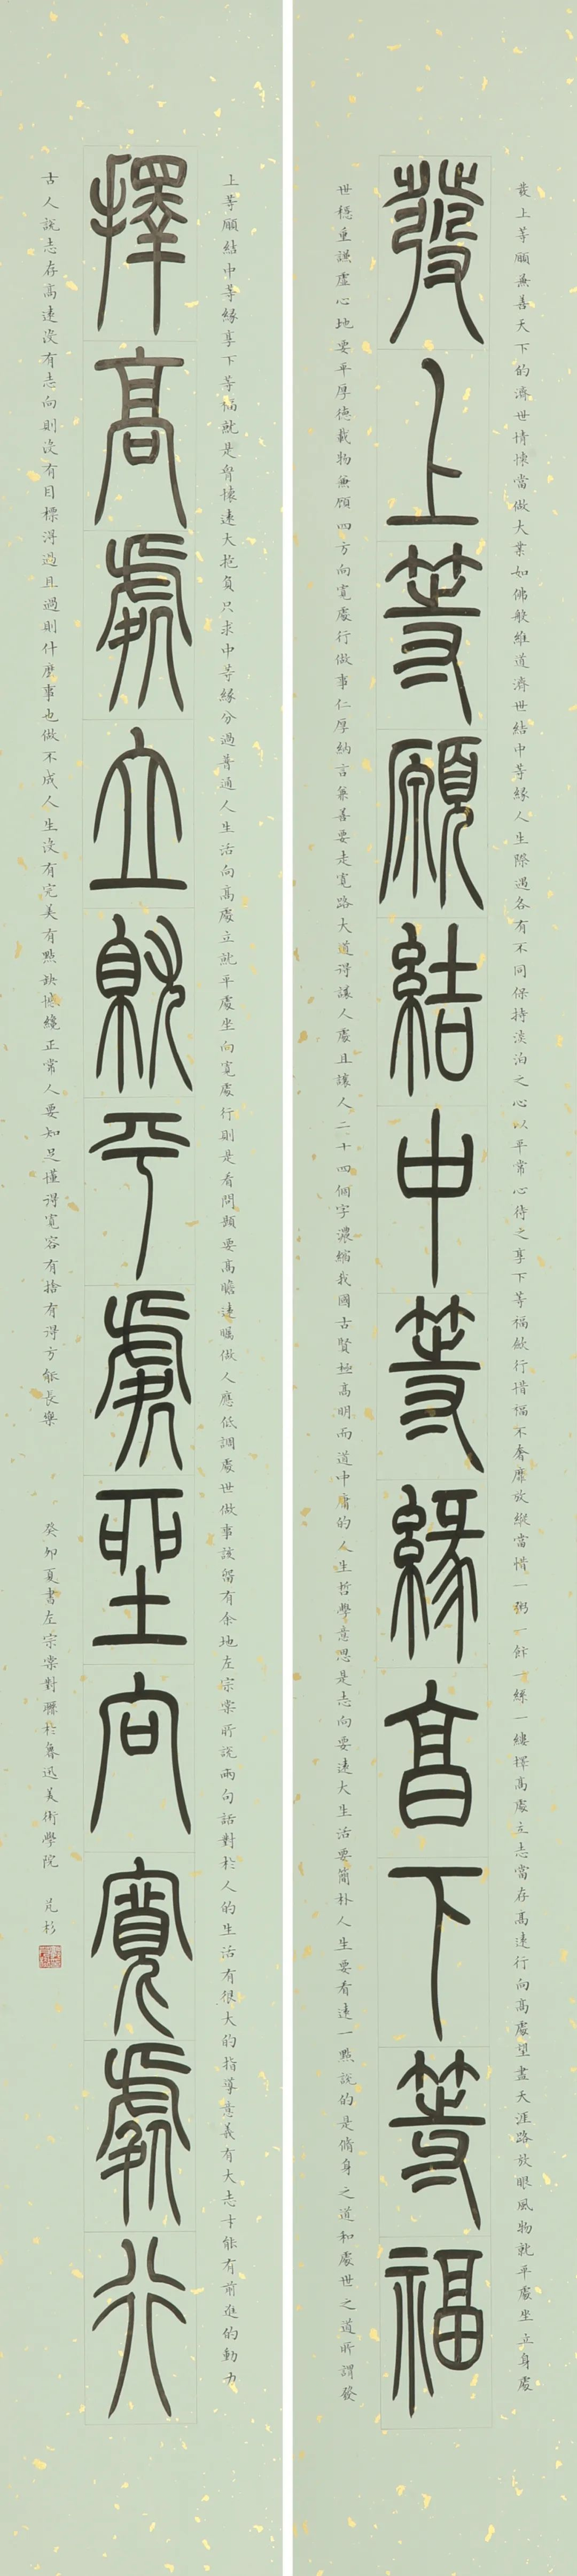 發上等願兼善天下的濟世情懷當做大業如佛般維道濟世結中等緣人生際遇各有不同保持淡泊之心以平常心待之享下等福欲行惜福不奢靡放縱當惜一粥一飯一絲一縷擇高處立志當存高遠行向高處望盡天涯路放眼風物就平處坐立身處
發上等願結中等緣享下等福
世穩重謙虛心地要平厚德載物兼顧四方向寬處行做事仁厚納言兼善要走寬路大道得讓人處且讓人二十四個字濃縮我國古賢極高明而道中庸的人生哲學意思是志向要遠大生活要簡朴人生要看遠一點說的是脩身之道和處世之道所謂發
上等願結中等緣享下等福就是胷懷遠大抱負只求中等緣分過普通人生活向高處立就平處坐向寬處行則是看問題要高瞻遠矚做人應低調處世做事該留有余地左宗棠所說兩句話對於人的生活有很大的指導意義有大志才能有前進的動力
擇高處立就平處坐向寬處行
古人說志存高遠沒有志向則沒有目標得過且過則什麼事也做不成人生沒有完美有點缺憾纔正常人要知足懂得寬容有捨有得方能長樂 癸卯夏書左宗棠對聯於魯迅美術學院 芃杉